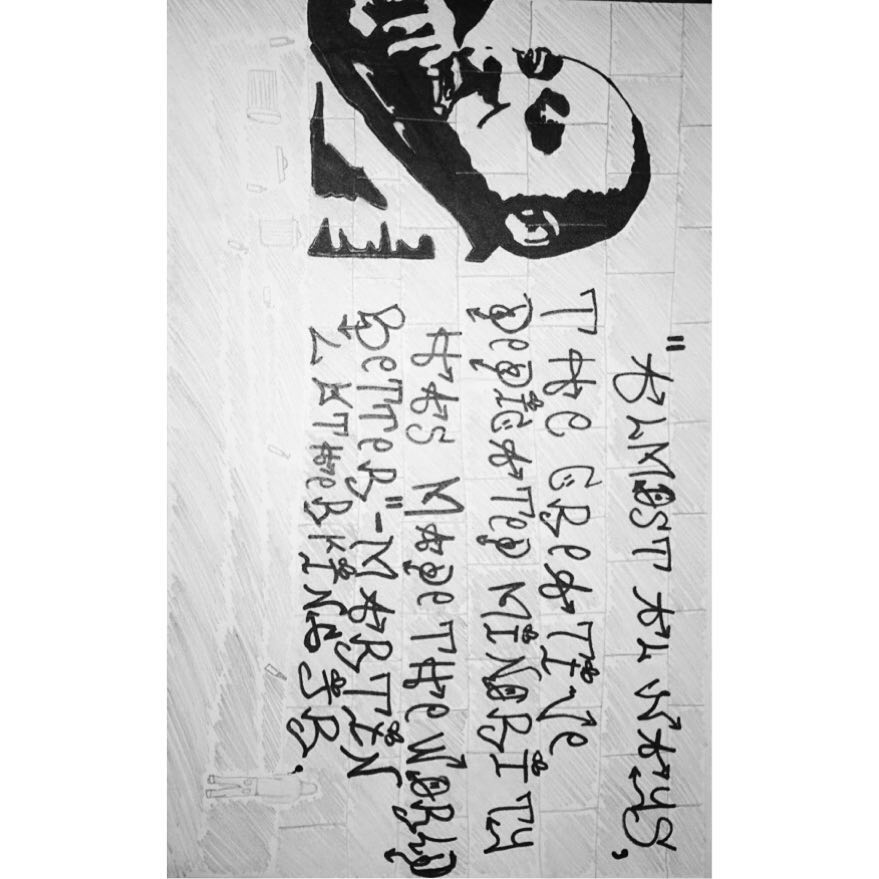 "ALMOST ALWAYS,
THe CReATIVe
DeDICATeD MINORITY
HAS MADe THe WORLD
BeTTeR"-MARTIN
LUTHeR KING JR.